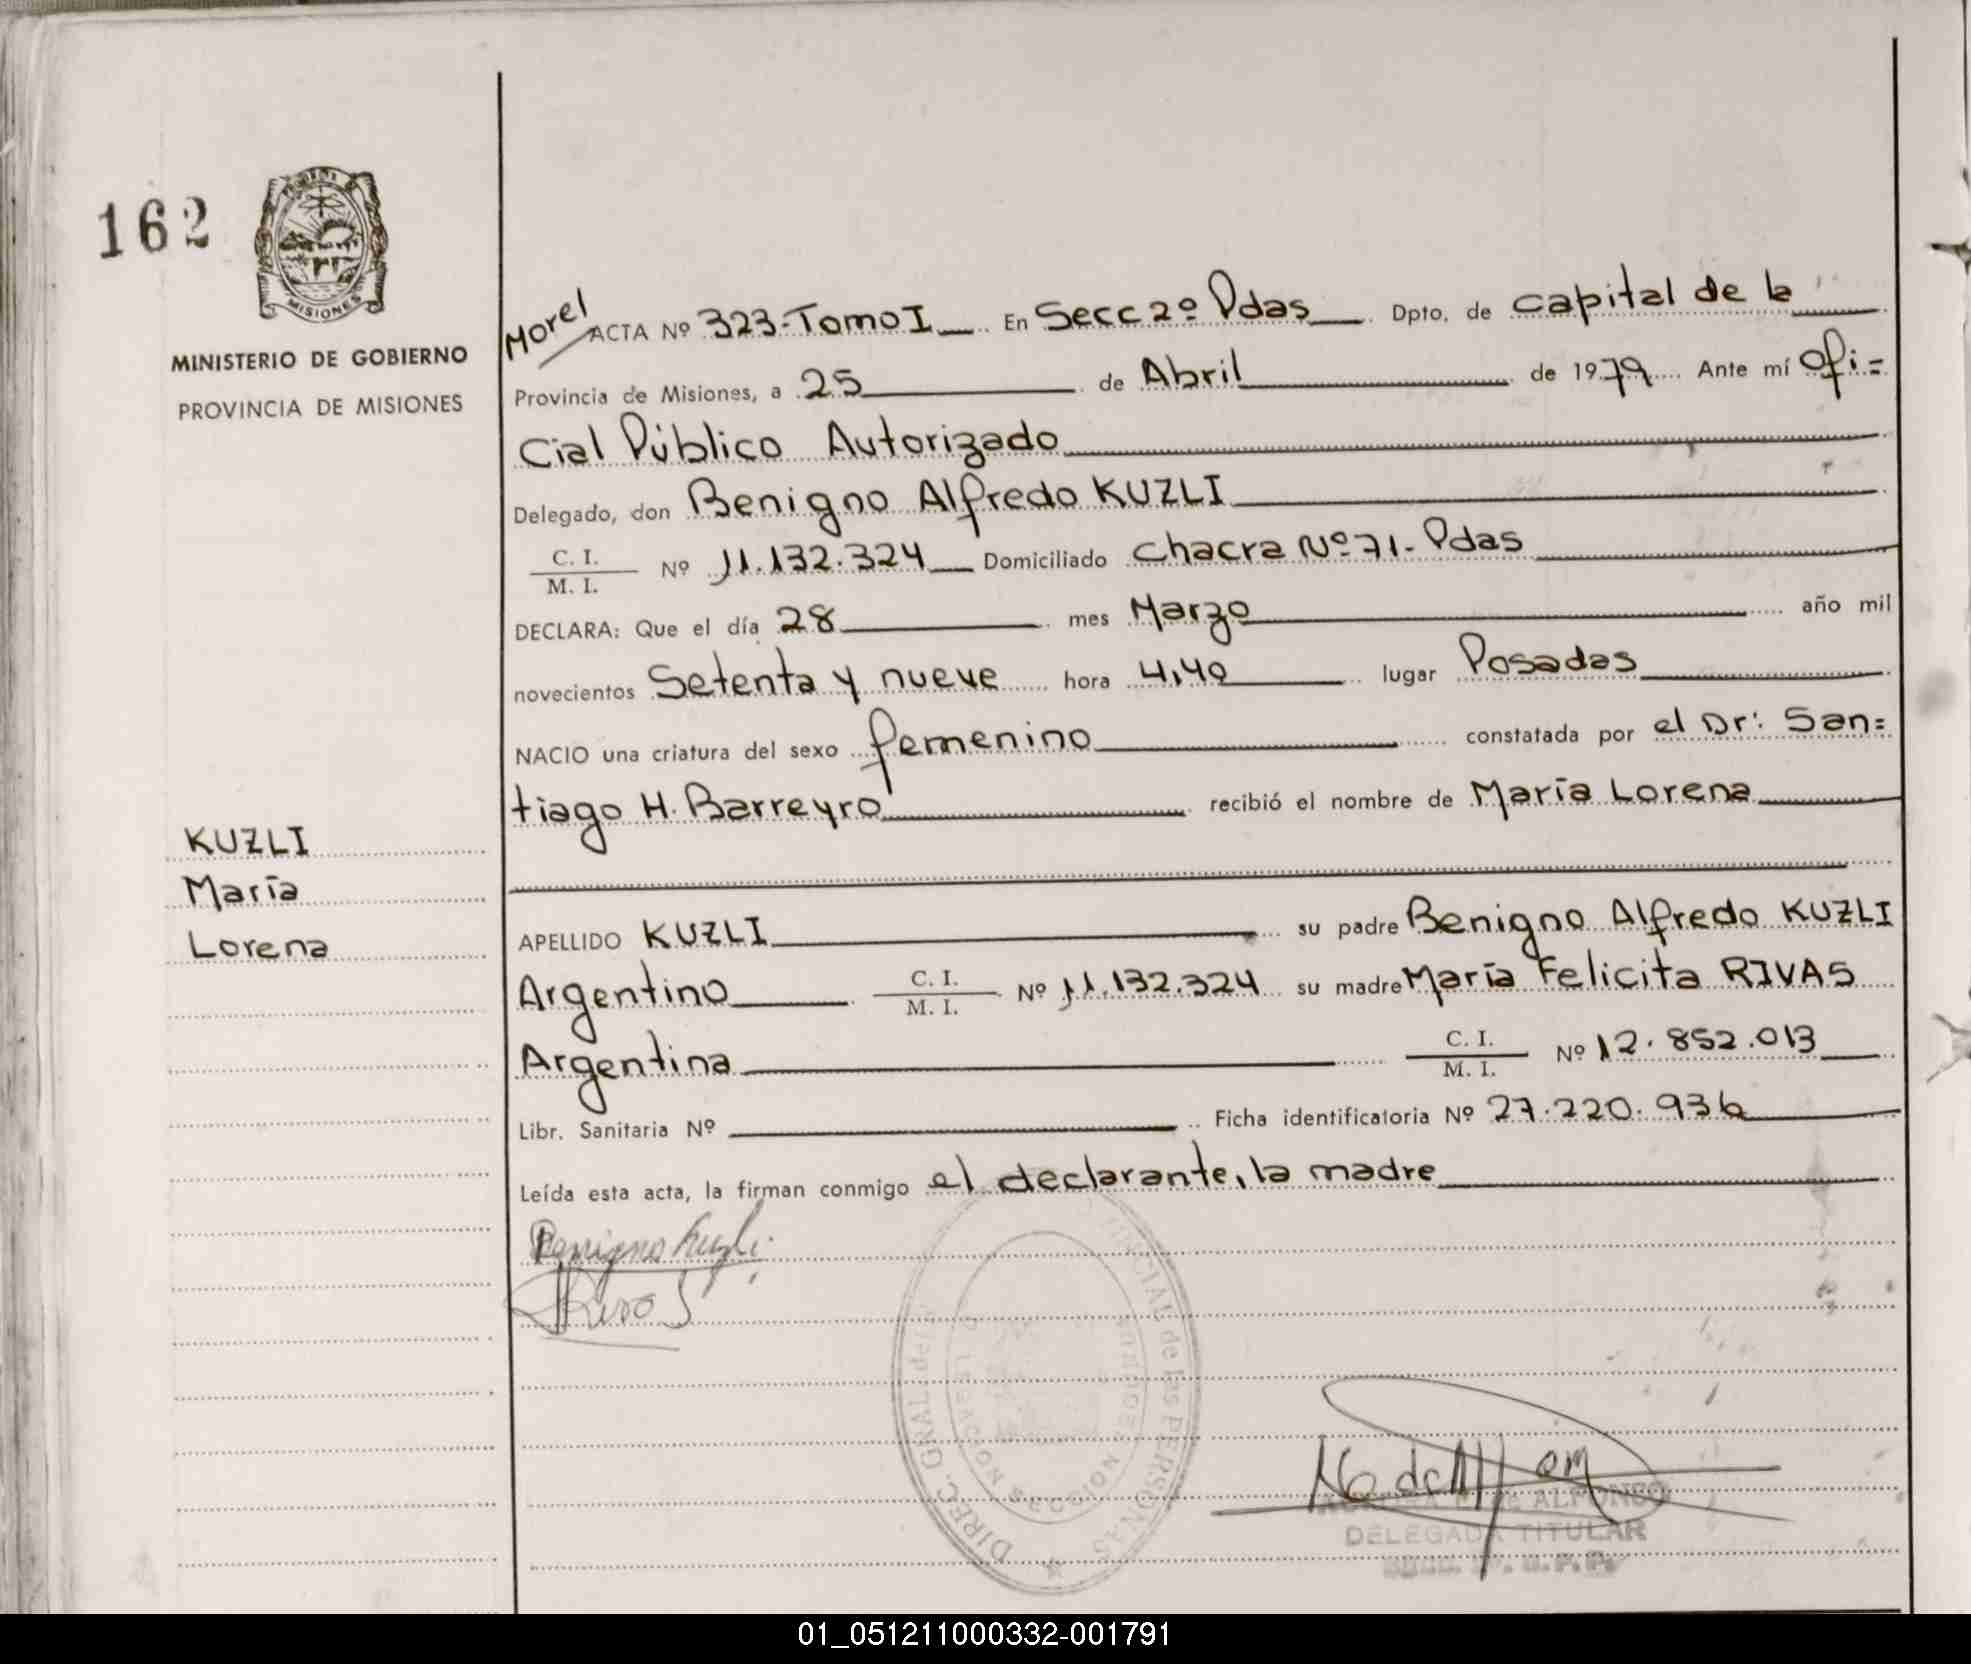 162
MISIONES
MINISTERIO DE GOBIERNO
PROVINCIA DE MISIONES
KUZLI
María
Lorena
Morel
ACTA Nº 323-Tomo I En Secc 2º Pdas Dpto. de capital de la
Provincia de Misiones, a 25 de Abril de 1979 Ante mí Ofi=
cial Público Autorizado
Delegado, don Benigno Alfredo KUZLI
C. I.
M. I. Nº 11.132.324 Domiciliado Chacra Nº 71- Pdas
DECLARA: Que el día 28 mes Marzo año mil
novecientos Setenta y nueve hora 4,40 lugar Posadas
NACIO una criatura del sexo femenino constatada por el Dr: San=
tiago H. Barreyro recibió el nombre de María Lorena
APELLIDO KUZLI su padre Benigno Alfredo KUZLI
Argentino C. I. M. I. Nº 11.132.324 su madre María Felicita RIVAS
Argentina C. I. M. I. Nº 12.852.013
Libr. Sanitaria Nº Ficha identificatoria Nº 27.220.936
Leída esta acta, la firman conmigo el declarante, la madre
Benigno Kuzli
DIREC. GRAL del de las PERSONAS
SECCION
de ALFONSO
DELEGADA TITULAR
01_051211000332-001791